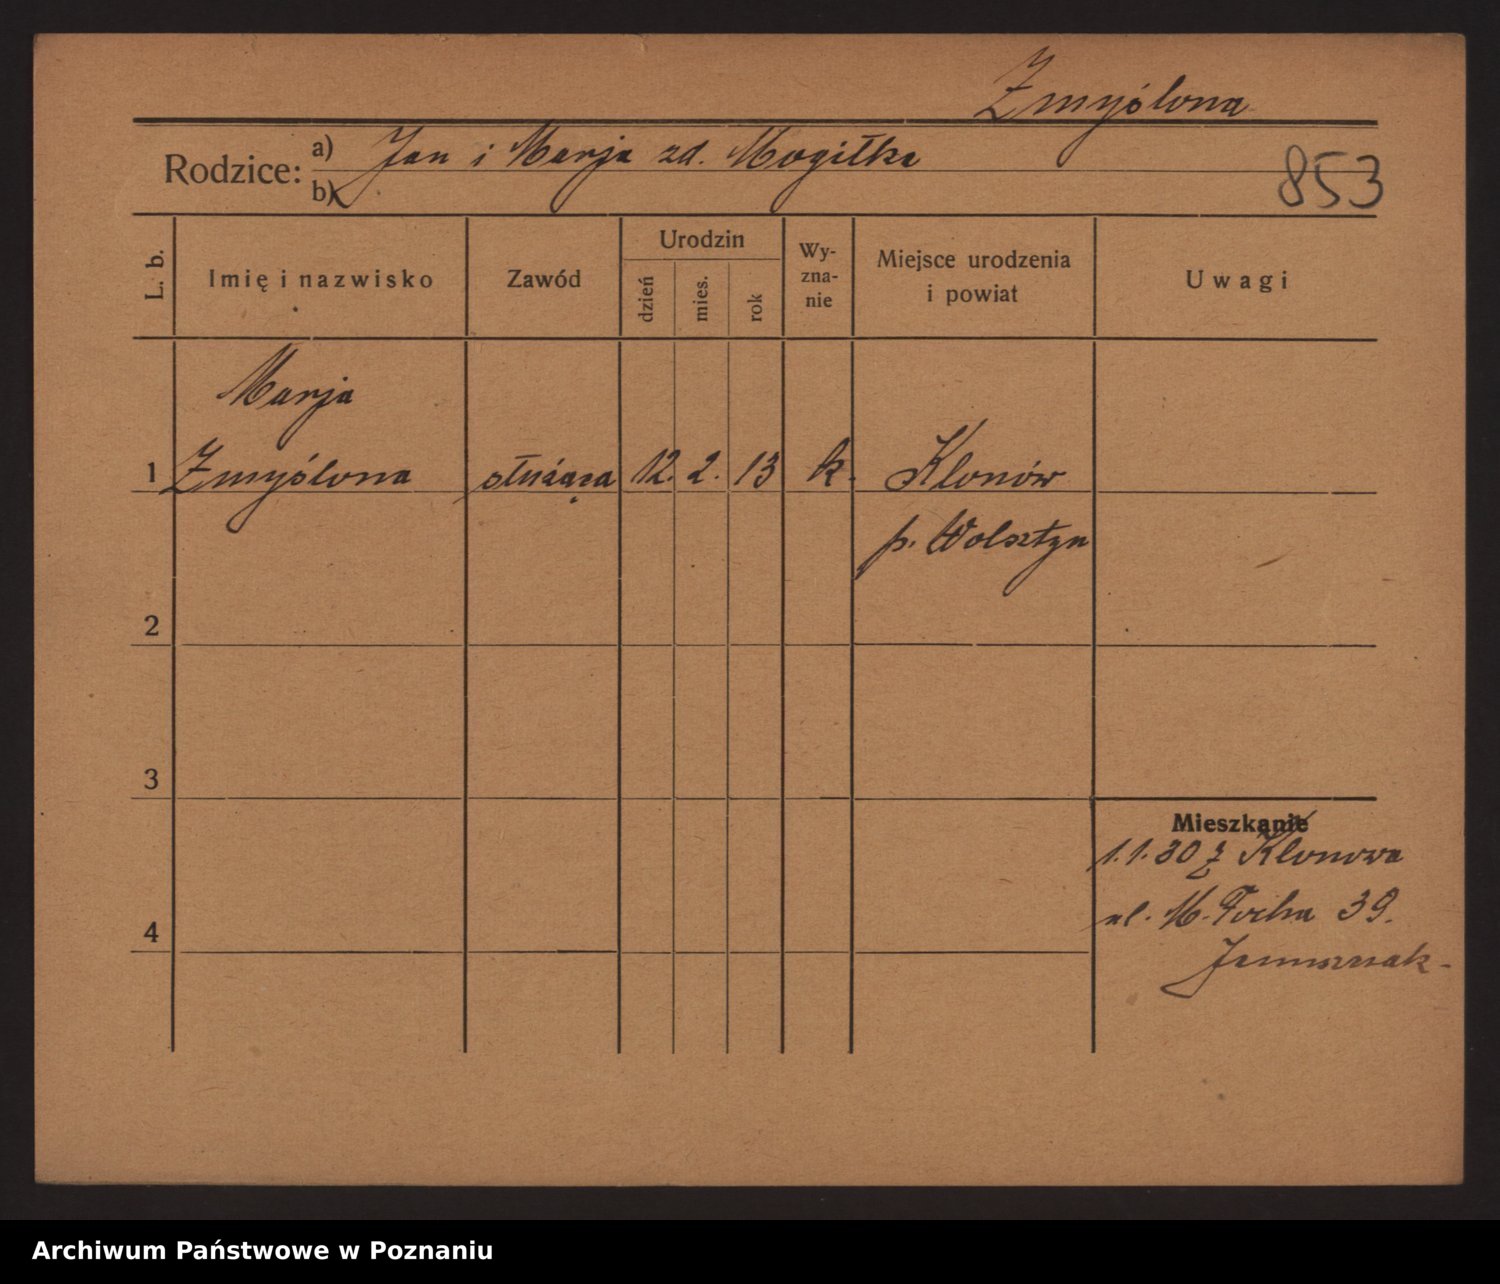 Zmyślona
Rodzice: a) Jan i Marja zd. Mogiłka
b)
853
L. b.
Imię i nazwisko
Zawód
Urodzin
dzień
mies.
rok
Wy-
zna-
nie
Miejsce urodzenia
i powiat
Uwagi
Marja
1 Zmyślona służąca 12. 2. 13 k. Klonów
p. Wolsztyn
2
3
Mieszkanie
1.1.30 z Klonowa
ul. M. Focha 39.
4
Archiwum Państwowe w Poznaniu